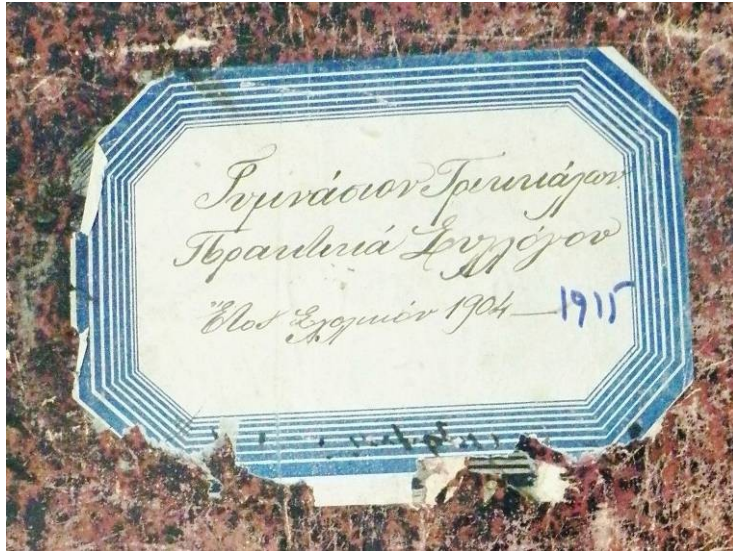 Γυμνάσιον Τρικκάλων
Πρακτικά Συλλόγου
Ἔτος Σχολικόν 1904—1915